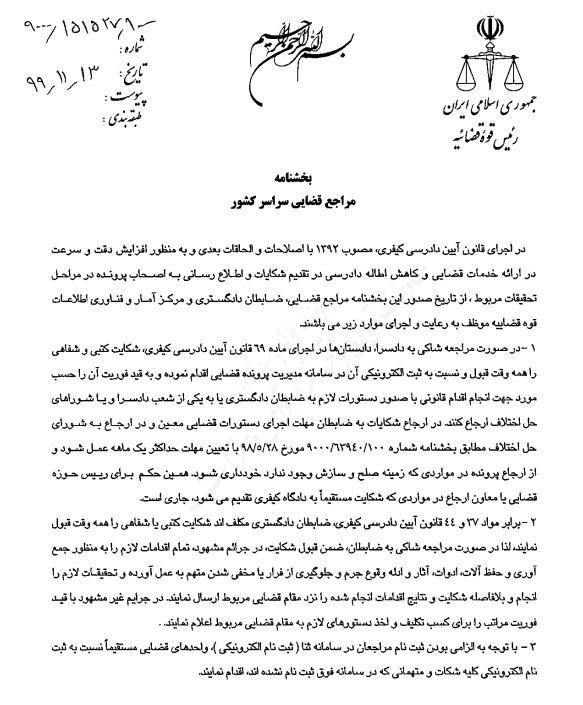 بسم الله الرحمن الرحیم
جمهوری اسلامی ایران
رئیس قوهٔ قضائیه
شماره : ۹۰۰۰/۱۵۱۵۲۷/۱۰۰
تاریخ : ۹۹/۱۱/۱۳
پیوست :
طبقه‌بندی :
بخشنامه
مراجع قضایی سراسر کشور
در اجرای قانون آیین دادرسی کیفری، مصوب ۱۳۹۲ با اصلاحات و الحاقات بعدی و به منظور افزایش دقت و سرعت
در ارائه خدمات قضایی و کاهش اطاله دادرسی در تقدیم شکایات و اطلاع رسانی به اصحاب پرونده در مراحل
تحقیقات مربوط ، از تاریخ صدور این بخشنامه مراجع قضایی، ضابطان دادگستری و مرکز آمار و فناوری اطلاعات
قوه قضاییه موظف به رعایت و اجرای موارد زیر می باشند.
۱ -در صورت مراجعه شاکی به دادسرا، دادستان‌ها در اجرای ماده ۶۹ قانون آیین دادرسی کیفری، شکایت کتبی و شفاهی
را همه وقت قبول و نسبت به ثبت الکترونیکی آن در سامانه مدیریت پرونده قضایی اقدام نموده و به قید فوریت آن را حسب
مورد جهت انجام اقدام قانونی با صدور دستورات لازم به ضابطان دادگستری یا به یکی از شعب دادسرا و یا شوراهای
حل اختلاف ارجاع کنند. در ارجاع شکایات به ضابطان مهلت اجرای دستورات قضایی معین و در ارجاع به شورای
حل اختلاف مطابق بخشنامه شماره ۹۰۰۰/۶۳۹۴۰/۱۰۰ مورخ ۹۸/۵/۲۸ با تعیین مهلت حداکثر یک ماهه عمل شود و
از ارجاع پرونده در مواردی که زمینه صلح و سازش وجود ندارد خودداری شود. همین حکم برای رییس حوزه
قضایی یا معاون ارجاع در مواردی که شکایت مستقیماً به دادگاه کیفری تقدیم می شود، جاری است.
۲ -برابر مواد ۳۷ و ۴۴ قانون آیین دادرسی کیفری، ضابطان دادگستری مکلف اند شکایت کتبی یا شفاهی را همه وقت قبول
نمایند، لذا در صورت مراجعه شاکی به ضابطان، ضمن قبول شکایت، در جرائم مشهود، تمام اقدامات لازم را به منظور جمع
آوری و حفظ آلات، ادوات، آثار و ادله وقوع جرم و جلوگیری از فرار یا مخفی شدن متهم به عمل آورده و تحقیقات لازم را
انجام و بلافاصله شکایت و نتایج اقدامات انجام شده را نزد مقام قضایی مربوط ارسال نمایند. در جرایم غیر مشهود با قید
فوریت مراتب را برای کسب تکلیف و اخذ دستورهای لازم به مقام قضایی مربوط اعلام نمایند. .
۳ – با توجه به الزامی بودن ثبت نام مراجعان در سامانه ثنا ( ثبت نام الکترونیکی )، واحدهای قضایی مستقیماً نسبت به ثبت
نام الکترونیکی کلیه شکات و متهمانی که در سامانه فوق ثبت نام نشده اند، اقدام نمایند.